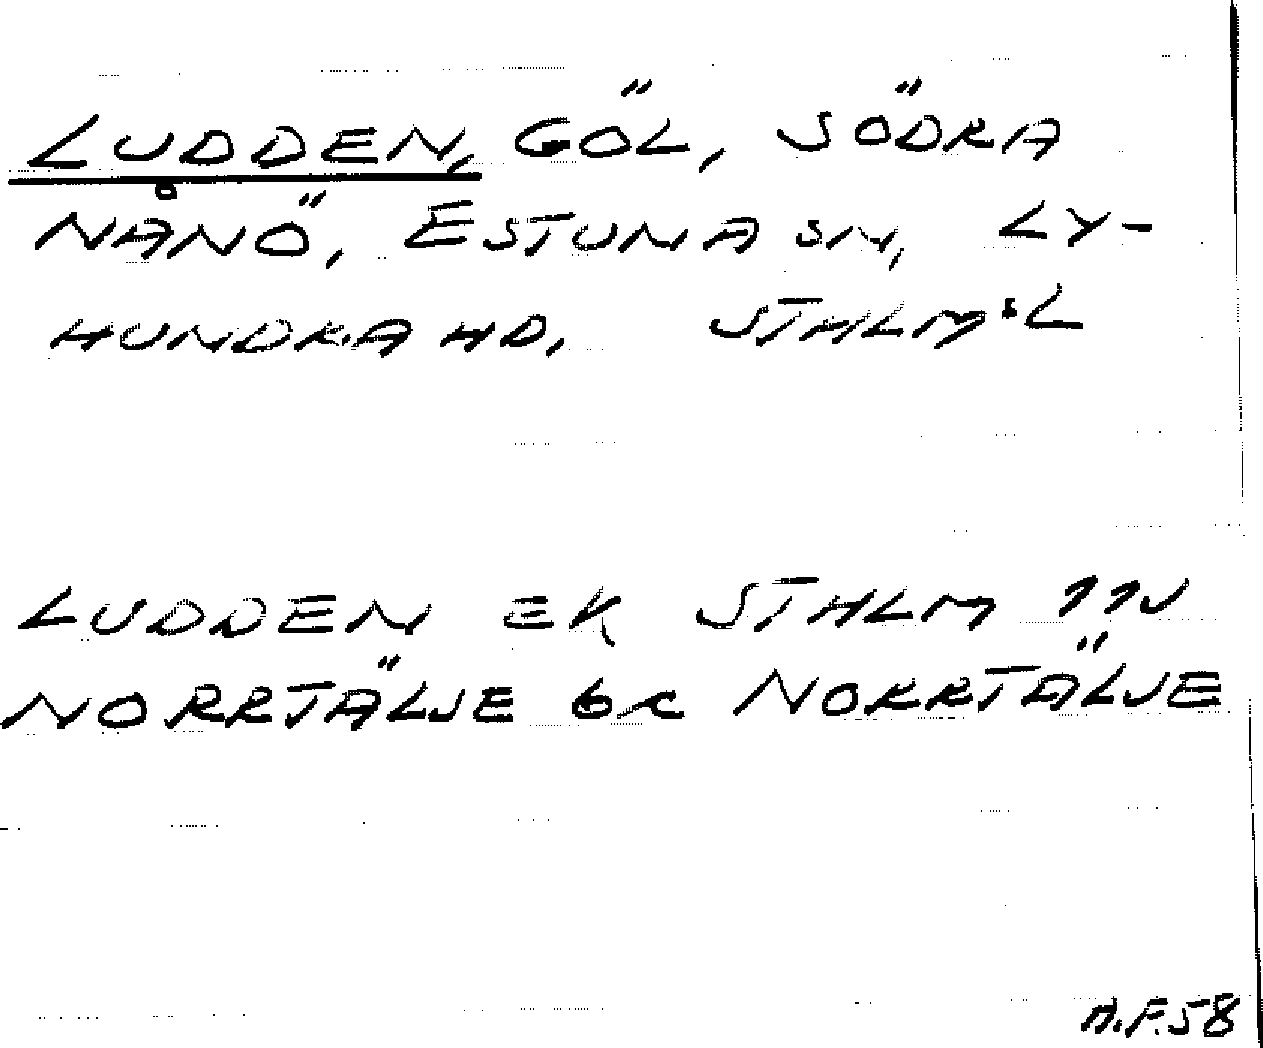 LUDDEN, GÖL, SÖDRA
NÅNÖ, ESTUNA SN, LY-
HUNDRA HD. STHLM:S L
LUDDEN EK STHLM 11J
NORRTÄLJE 6c NORRTÄLJE
A.F.58